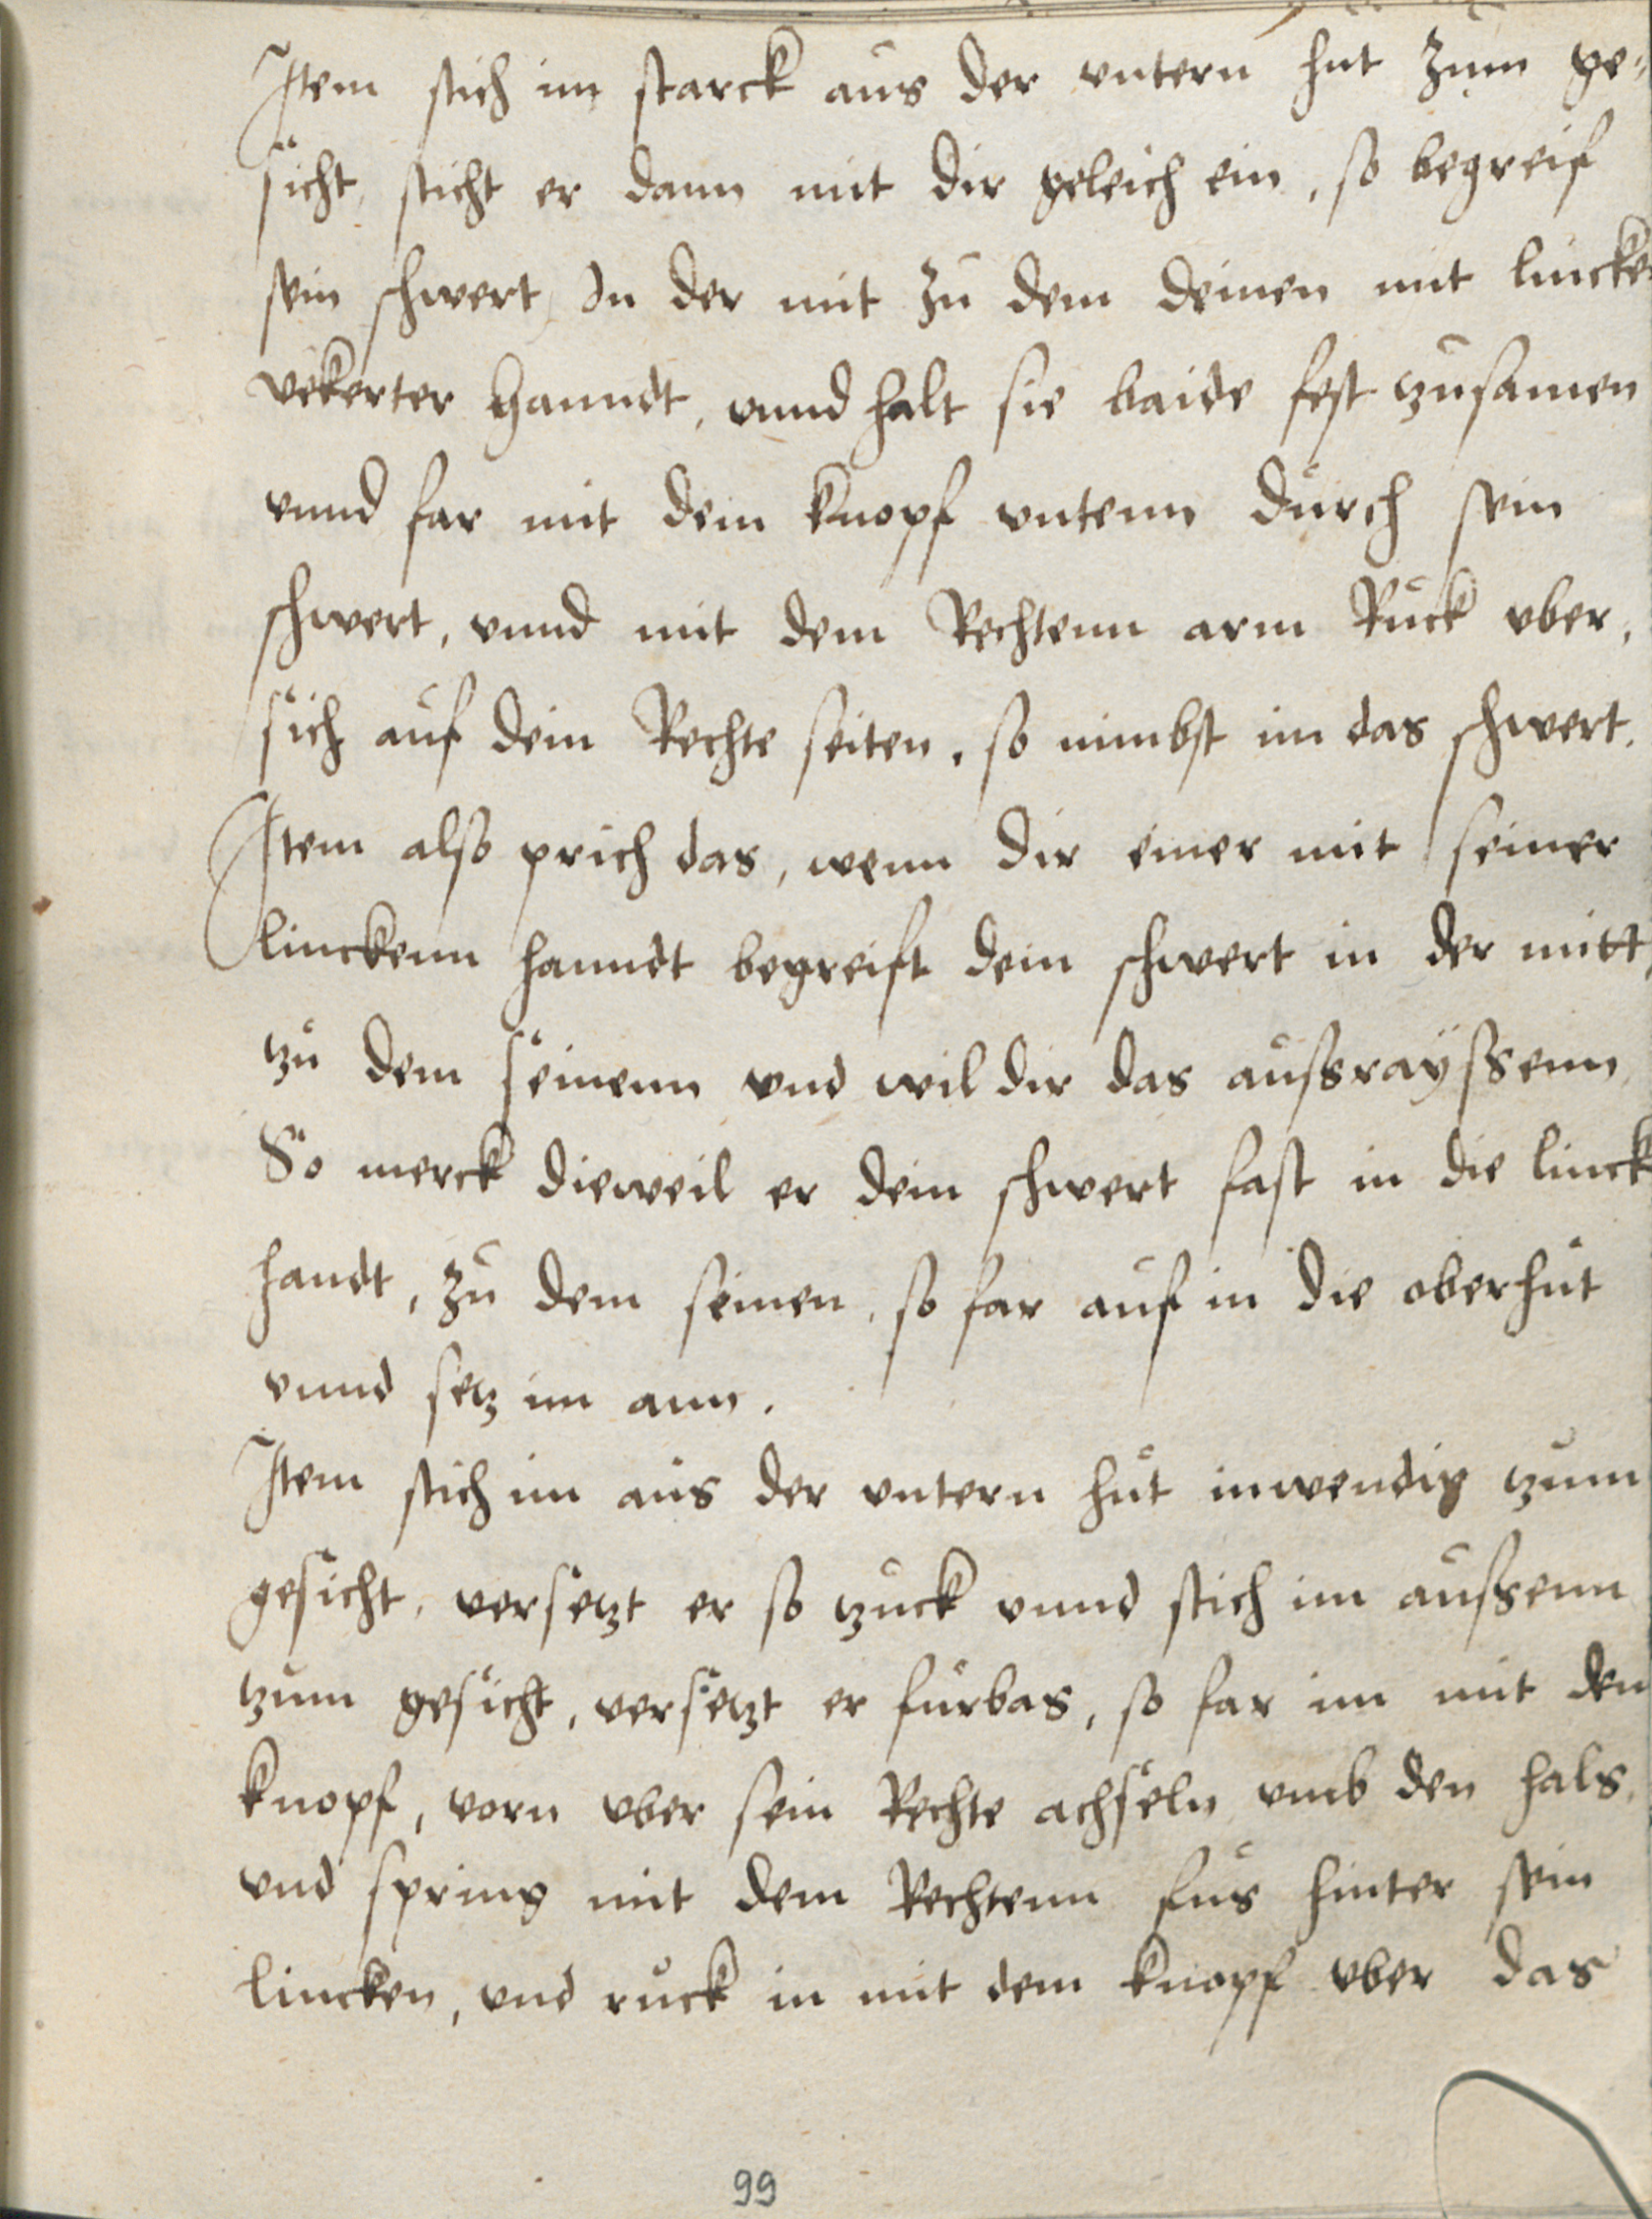 Item stich im starck aus der untern hut zum ge-
sicht, sticht er dann mit dir geleich ein, so begreif
sein schwert, In der mit zu dem deinen mit lincke
vekerter hanndt, vnnd halt sie baide fest zusamen
vnnd far mit dem knopf vntenn durch sein
schwert, vnnd mit dem Rechtenn arm Ruck vber,
sich auf dein Rechte seiten, so nimbst im das schwert.
Item also prich das, wenn dir einer mit seiner
linckenn hanndt begreift dein schwert in der mitt,
zu dem seinenn vnd wil dir das aussrayssenn
So merck dieweil er dein schwert fast in die linck
handt, zu dem seinen, so far auf in die oberhut
vnnd setz im ann.
Item stich im aus der vntern hut inwendig zum
gesicht, versetzt er so zuck vnnd stich im aussenn
zum gesicht, versetzt er furbas, so far im mit den
knopf, vorn vber sein Rechte achseln vmb den hals,
vnd spring mit dem Rechtenn fus hinter sein
lincken, vnd ruck in mit dem knopf vber das
99